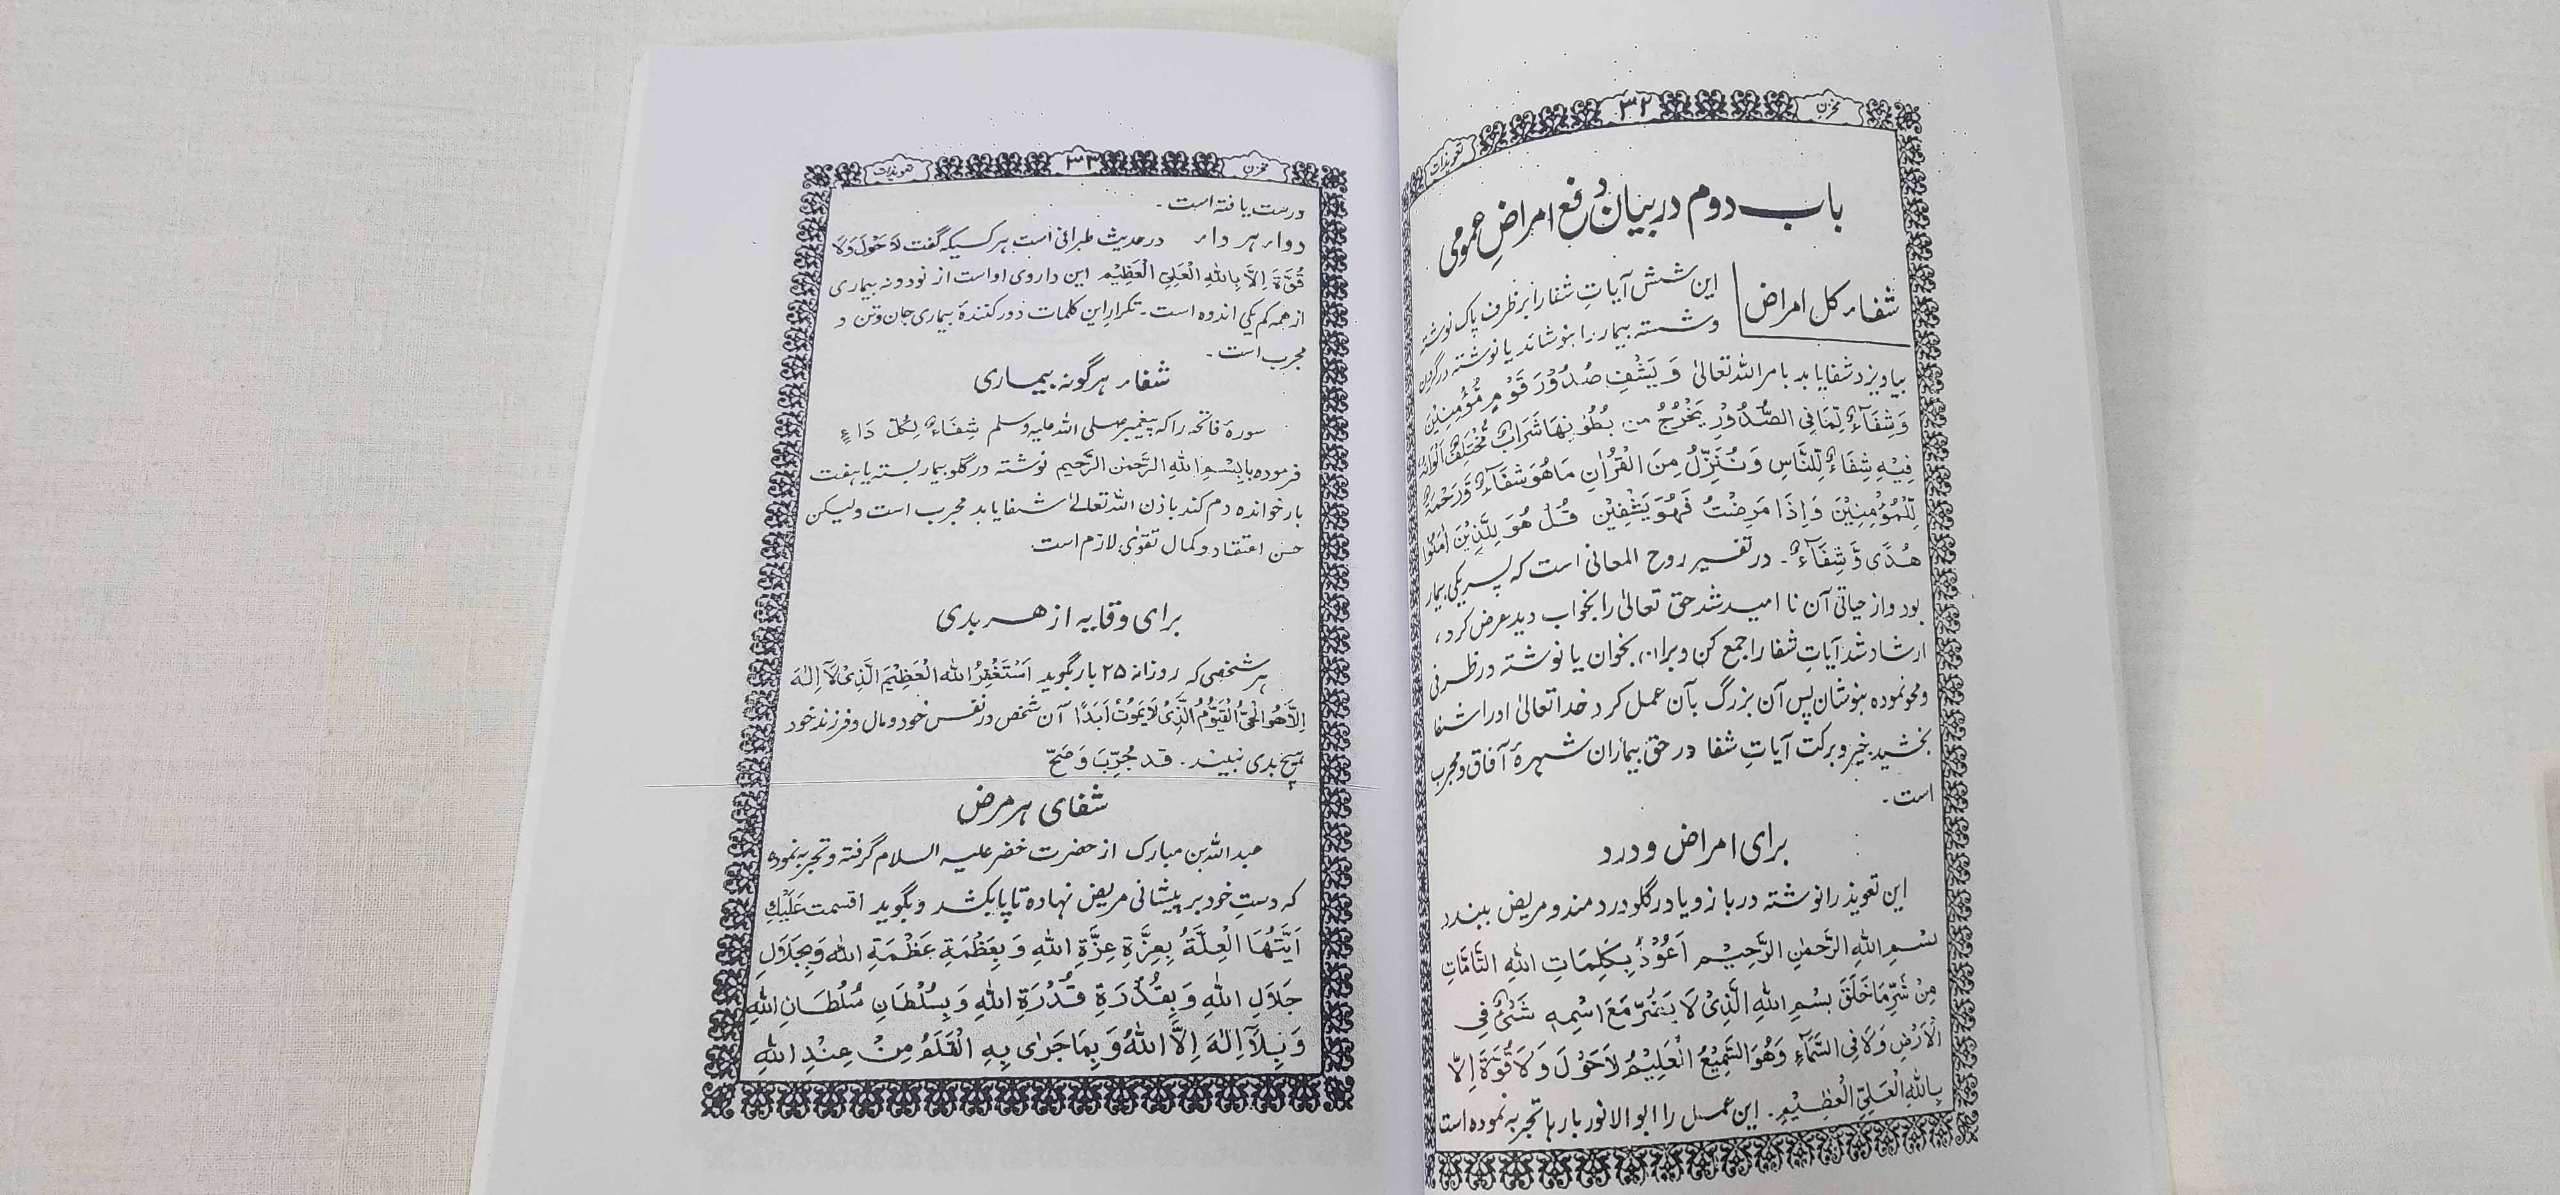 مخزن ۳۲ تعویذات
باب دوم در بیان دفع امراضِ عمومی
شفاء کل امراض
این شش آیاتِ شفا را بر ظرف پاک نوشته
وشسته بیمار را بنوشاند یا نوشته در گردن
بیاویزد شفا یابد بامر الله تعالیٰ وَ یَشْفِ صُدُوْرَ قَوْمٍ مُّؤْمِنِیْنَ
وَشِفَآءٌ لِّمَا فِی الصُّدُوْرِ یَخْرُجُ مِن بُطُوْنِهَا شَرَابٌ مُّخْتَلِفٌ اَلْوَانُهٗ
فِیْهِ شِفَآءٌ لِّلنَّاسِ وَنُنَزِّلُ مِنَ الْقُرْاٰنِ مَا هُوَ شِفَآءٌ وَّرَحْمَةٌ
لِّلْمُؤْمِنِیْنَ وَاِذَا مَرِضْتُ فَهُوَ یَشْفِیْنِ قُلْ هُوَ لِلَّذِیْنَ اٰمَنُوْا
هُدًی وَّ شِفَآءٌ ۔ در تفسیر روح المعانی است که پسر یکی بیمار
بود و از حیاتی آن نا امید شد حق تعالیٰ را بخواب دید عرض کرد،
ارشاد شد آیاتِ شفا را جمع کن و برا آن بخوان یا نوشته در ظرفی
ومحو نموده بنوشان پس آن بزرگ بآن عمل کرد خدا تعالیٰ او را شفا
بخشید خیر و برکت آیاتِ شفا در حق بیماران شهرهٔ آفاق و مجرب
است ۔
برای امراض و درد
این تعویذ را نوشته در بازو یا در گلو درد مند و مریض ببندد
بِسْمِ اللهِ الرَّحْمٰنِ الرَّحِیْمِ اَعُوْذُ بِکَلِمَاتِ اللهِ التَّامَّاتِ
مِنْ شَرِّ مَا خَلَقَ بِسْمِ اللهِ الَّذِیْ لَا یَضُرُّ مَعَ اسْمِهٖ شَیْءٌ فِی
الْاَرْضِ وَلَا فِی السَّمَآءِ وَهُوَ السَّمِیْعُ الْعَلِیْمُ لَا حَوْلَ وَلَا قُوَّةَ اِلَّا
بِاللهِ الْعَلِیِّ الْعَظِیْمِ ۔ این عمل را ابو الانور بار ها تجربه نموده است
مخزن ۳۳ تعویذات
درست یافته است ۔
دواء هر داء در حدیث طبرانی است هر کسیکه گفت لَا حَوْلَ وَلَا
قُوَّةَ اِلَّا بِاللهِ الْعَلِیِ الْعَظِیْمِ این داروی او است از نود و نه بیماری
از همه کم یکی اندوه است ۔ تکرارِ این کلمات دور کنندهٔ بیماری جان و تن و
مجرب است ۔
شفاء هر گونه بیماری
سورهٔ فاتحه را که پیغمبر صلی الله علیه وسلم شِفَاءٌ لِکُلِّ دَاءٍ
فرموده با بِسْمِ اللهِ الرَّحْمٰنِ الرَّحِیْمِ نوشته در گلو بیمار بسته یا هفت
بار خوانده دم کند باذن الله تعالیٰ شفا یابد مجرب است ولیکن
حسن اعتقاد و کمال تقویٰ لازم است.
برای وقایه از هر بدی
هر شخصی که روزانه ۲۵ بار بگوید اَسْتَغْفِرُ اللهَ الْعَظِیْمَ الَّذِیْ لَا اِلٰهَ
اِلَّا هُوَ الْحَیُّ الْقَیُّوْمُ الَّذِیْ لَا یَمُوْتُ اَبَدًا آن شخص در نفس خود و مال و فرزند خود
هیچ بدی نبیند ۔ قد جُرِّبَ وَ صَحَّ
شفای هر مرض
عبد الله بن مبارک از حضرت خضر علیه السلام گرفته و تجربه نموده
که دستِ خود بر پیشانی مریض نهاده تا پا بکشد و بگوید اقسمت عَلَیْكِ
اَیَّتُهَا الْعِلَّةُ بِعِزَّةِ عِزَّةِ اللهِ وَ بِعَظْمَةِ عَظْمَةِ اللهِ وَ بِجَلَالِ
جَلَالِ اللهِ وَ بِقُدْرَةِ قُدْرَةِ اللهِ وَ بِسُلْطَانِ سُلْطَانِ اللهِ
وَ بِلَآ اِلٰهَ اِلَّا اللهُ وَ بِمَا جَرٰی بِهِ الْقَلَمُ مِنْ عِنْدِ اللهِ